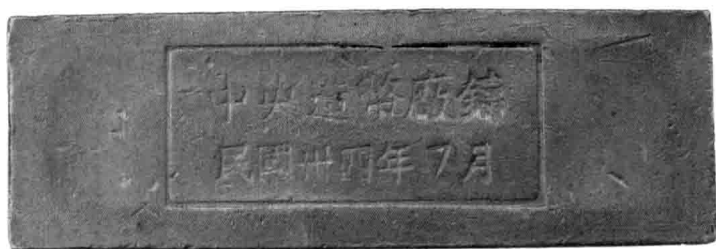 中央造幣廠鑄
民國卅四年7月